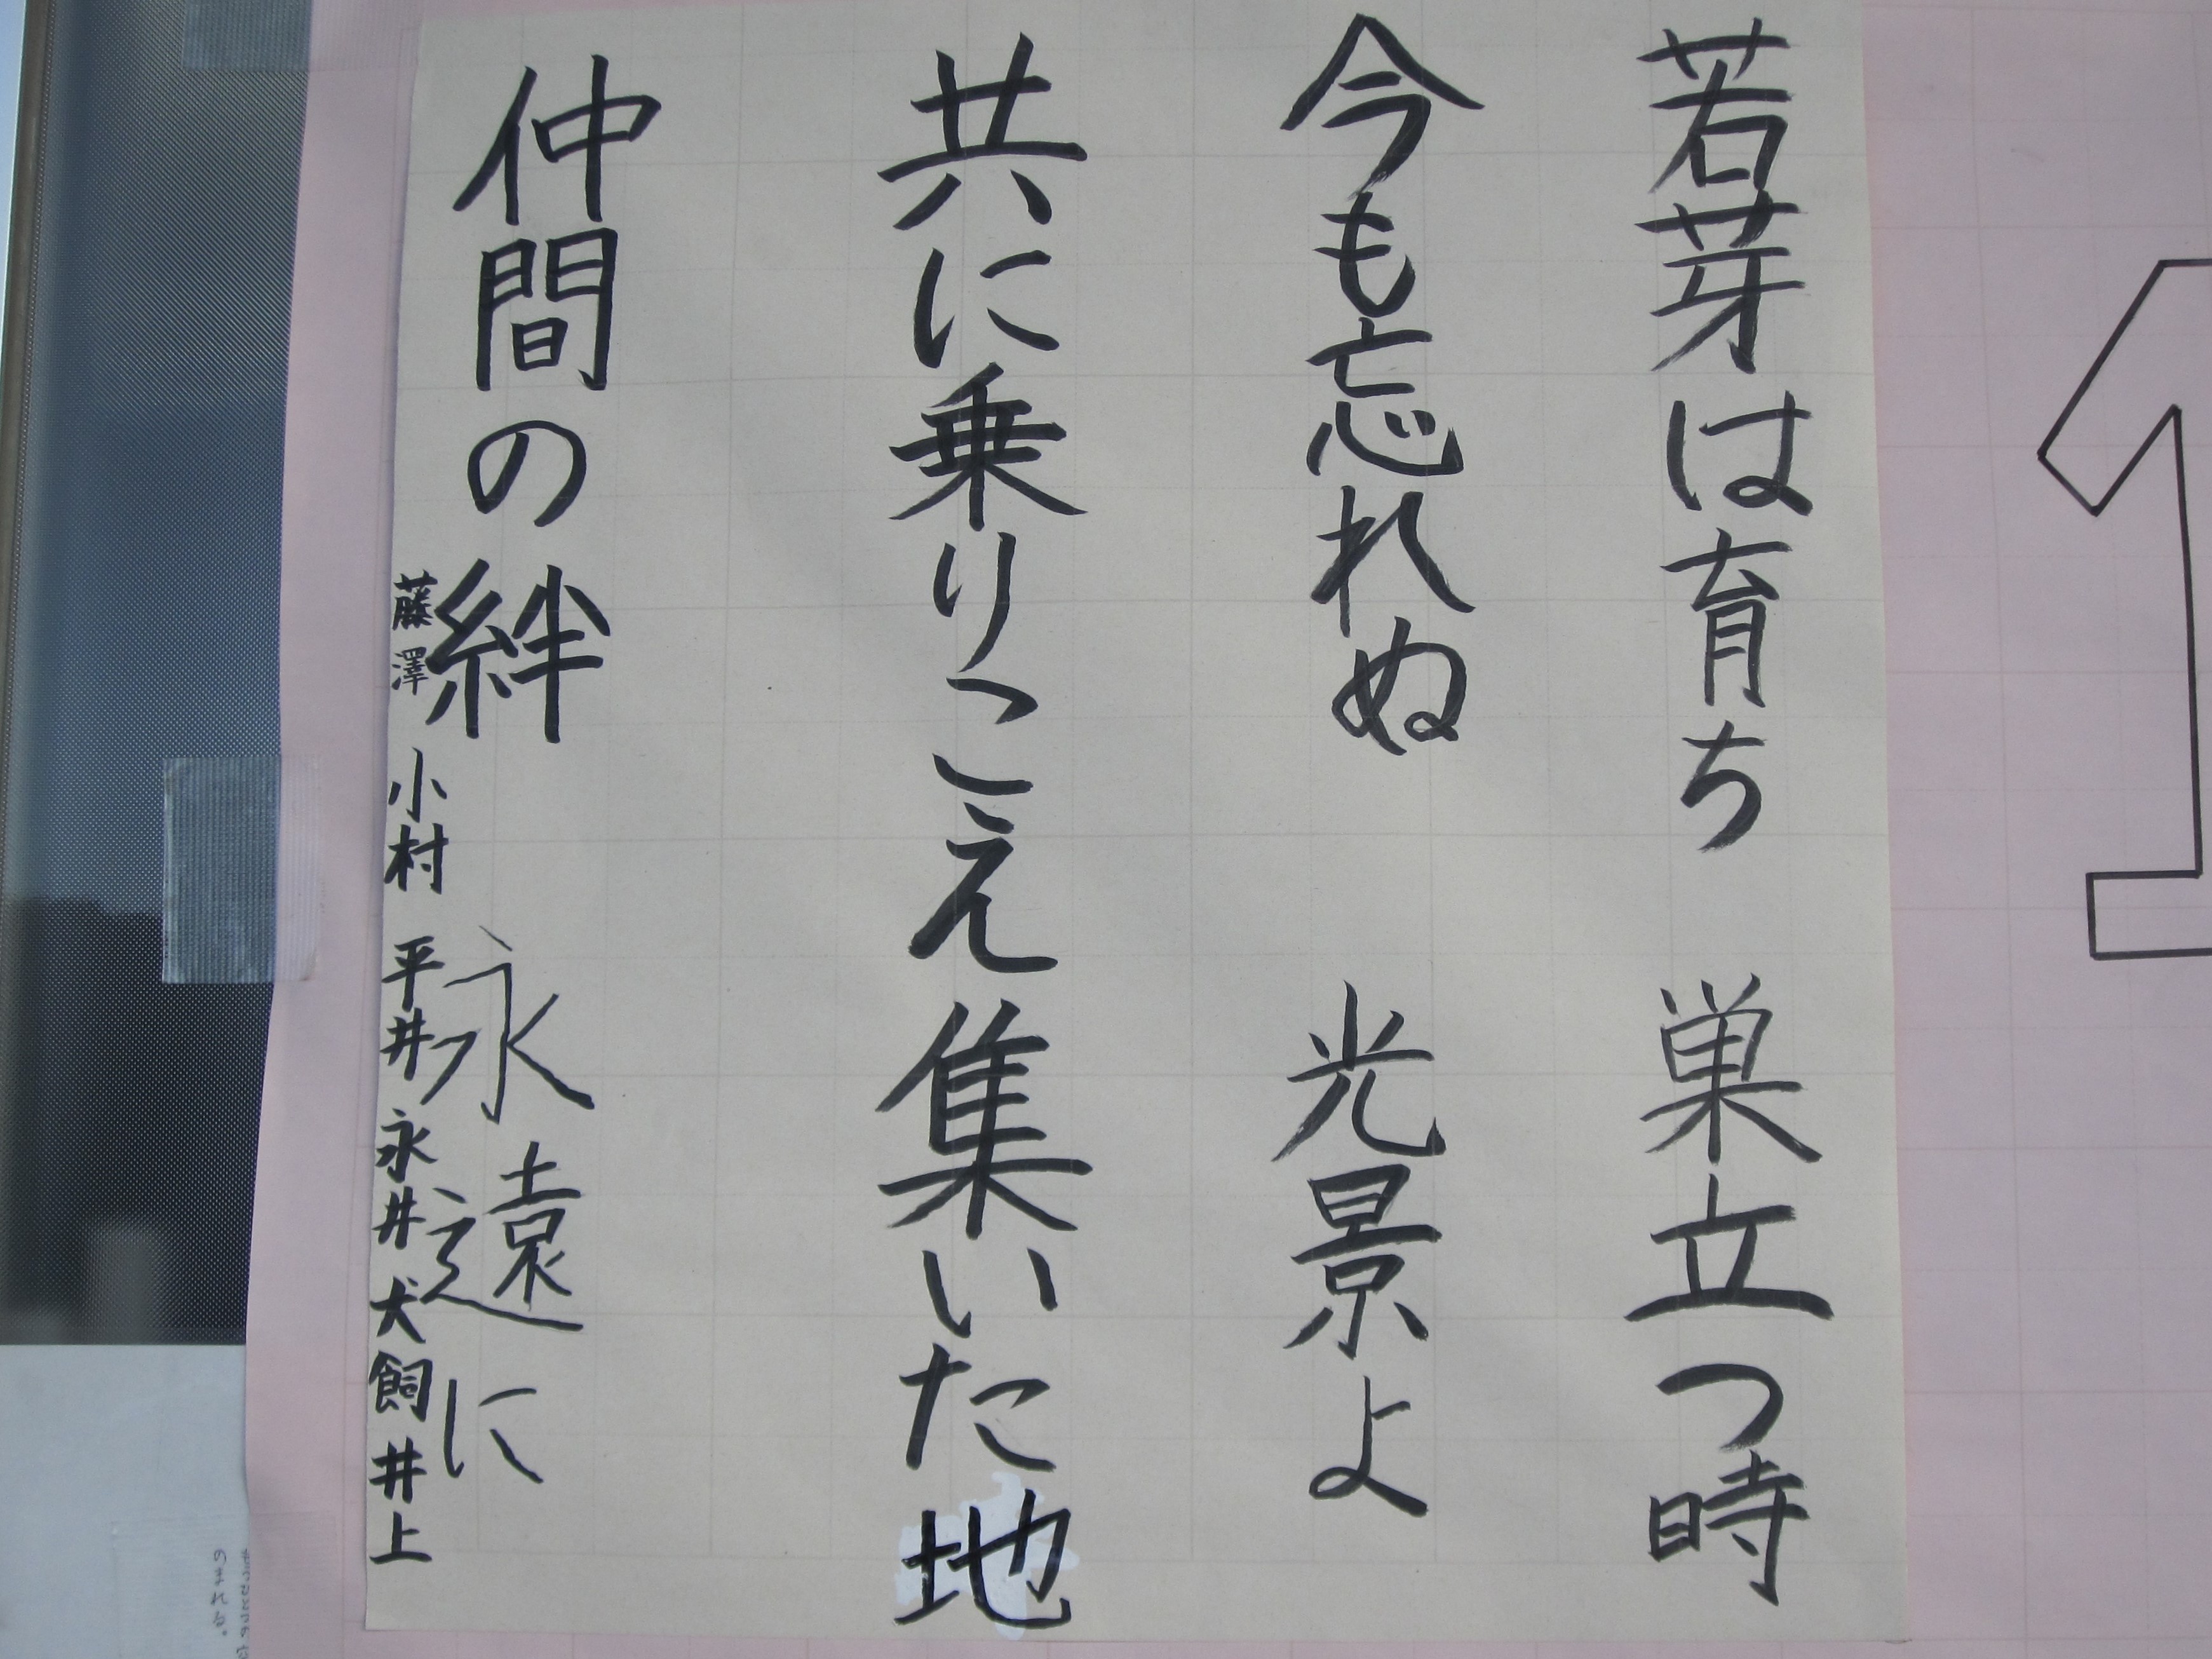 若芽は育ち　巣立つ時
今も忘れぬ　光景よ
共に乗りこえ集いた地
仲間の絆　永遠に
藤澤　小村　平井　永井　犬飼　井上
のまれる。
1